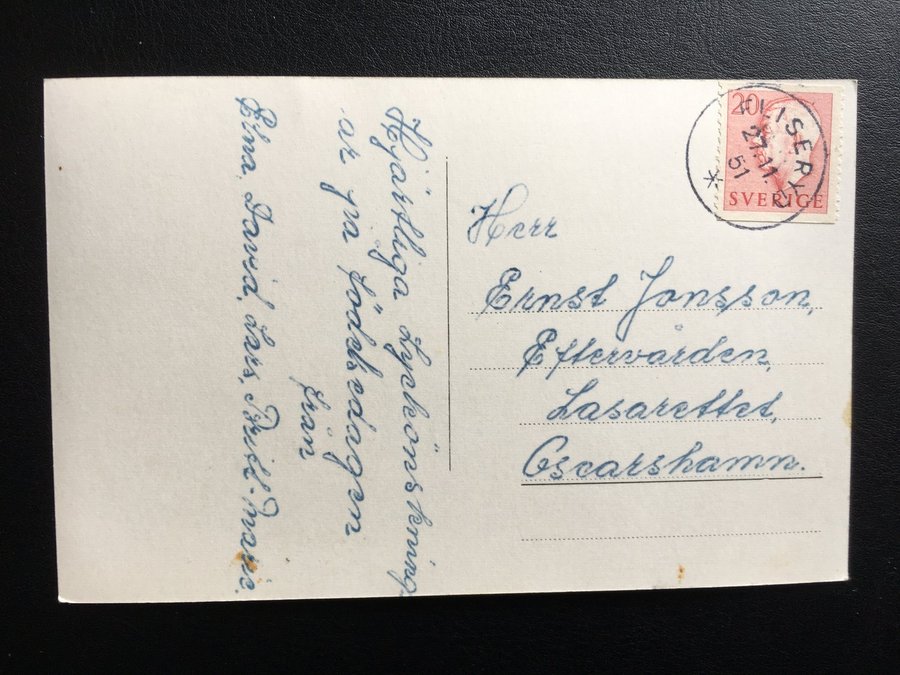 Hjärtliga Lyckönskning
av på födelsedagen
från
Elna, David, Lars, Britt-Marie.
20
SVERIGE
FLISERYD
27.11.
51
Herr
Ernst Jonsson,
Eftervården,
Lasarettet,
Oscarshamn.